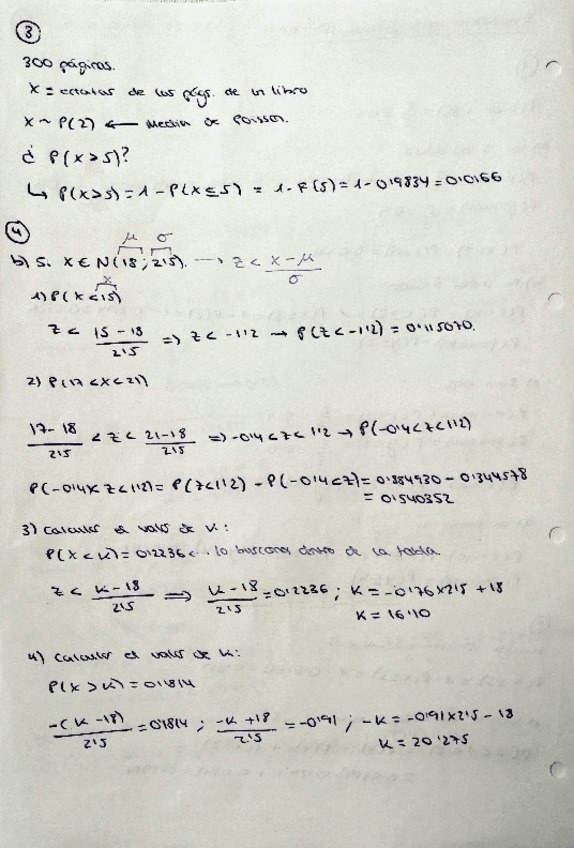 3
300 páginas.
X = erratas de las págs. de un libro
X ~ P(2) ← Media de Poisson.
¿ P(X>5)?
↳ P(X>5) = 1 - P(X≤5) = 1 - F(5) = 1 - 0'9834 = 0'0166
4
μ σ
b) Si X ∈ N(18; 2'5). → Z < X-μ / σ
x
1) P(X<15)
Z < 15-18 / 2'5 ⇒ Z < -1'2 → P(Z<-1'2) = 0'115070.
2) P(17<X<21)
17-18 / 2'5 < Z < 21-18 / 2'5 ⇒ -0'4<Z<1'2 → P(-0'4<Z<1'2)
P(-0'4<Z<1'2) = P(Z<1'2) - P(-0'4<Z) = 0'884930 - 0'344578
= 0'540352
3) Calcular el valor de K:
P(X<K) = 0'2236 ← lo buscamos dentro de la tabla
Z < K-18 / 2'5 ⇒ K-18 / 2'5 = 0'2236 ; K = -0'76×2'5 + 18
K = 16'10
4) Calcular el valor de K:
P(X>K) = 0'1814
-(K-18) / 2'5 = 0'1814 ; -K+18 / 2'5 = -0'91 ; -K = -0'91×2'5 - 18
K = 20'275